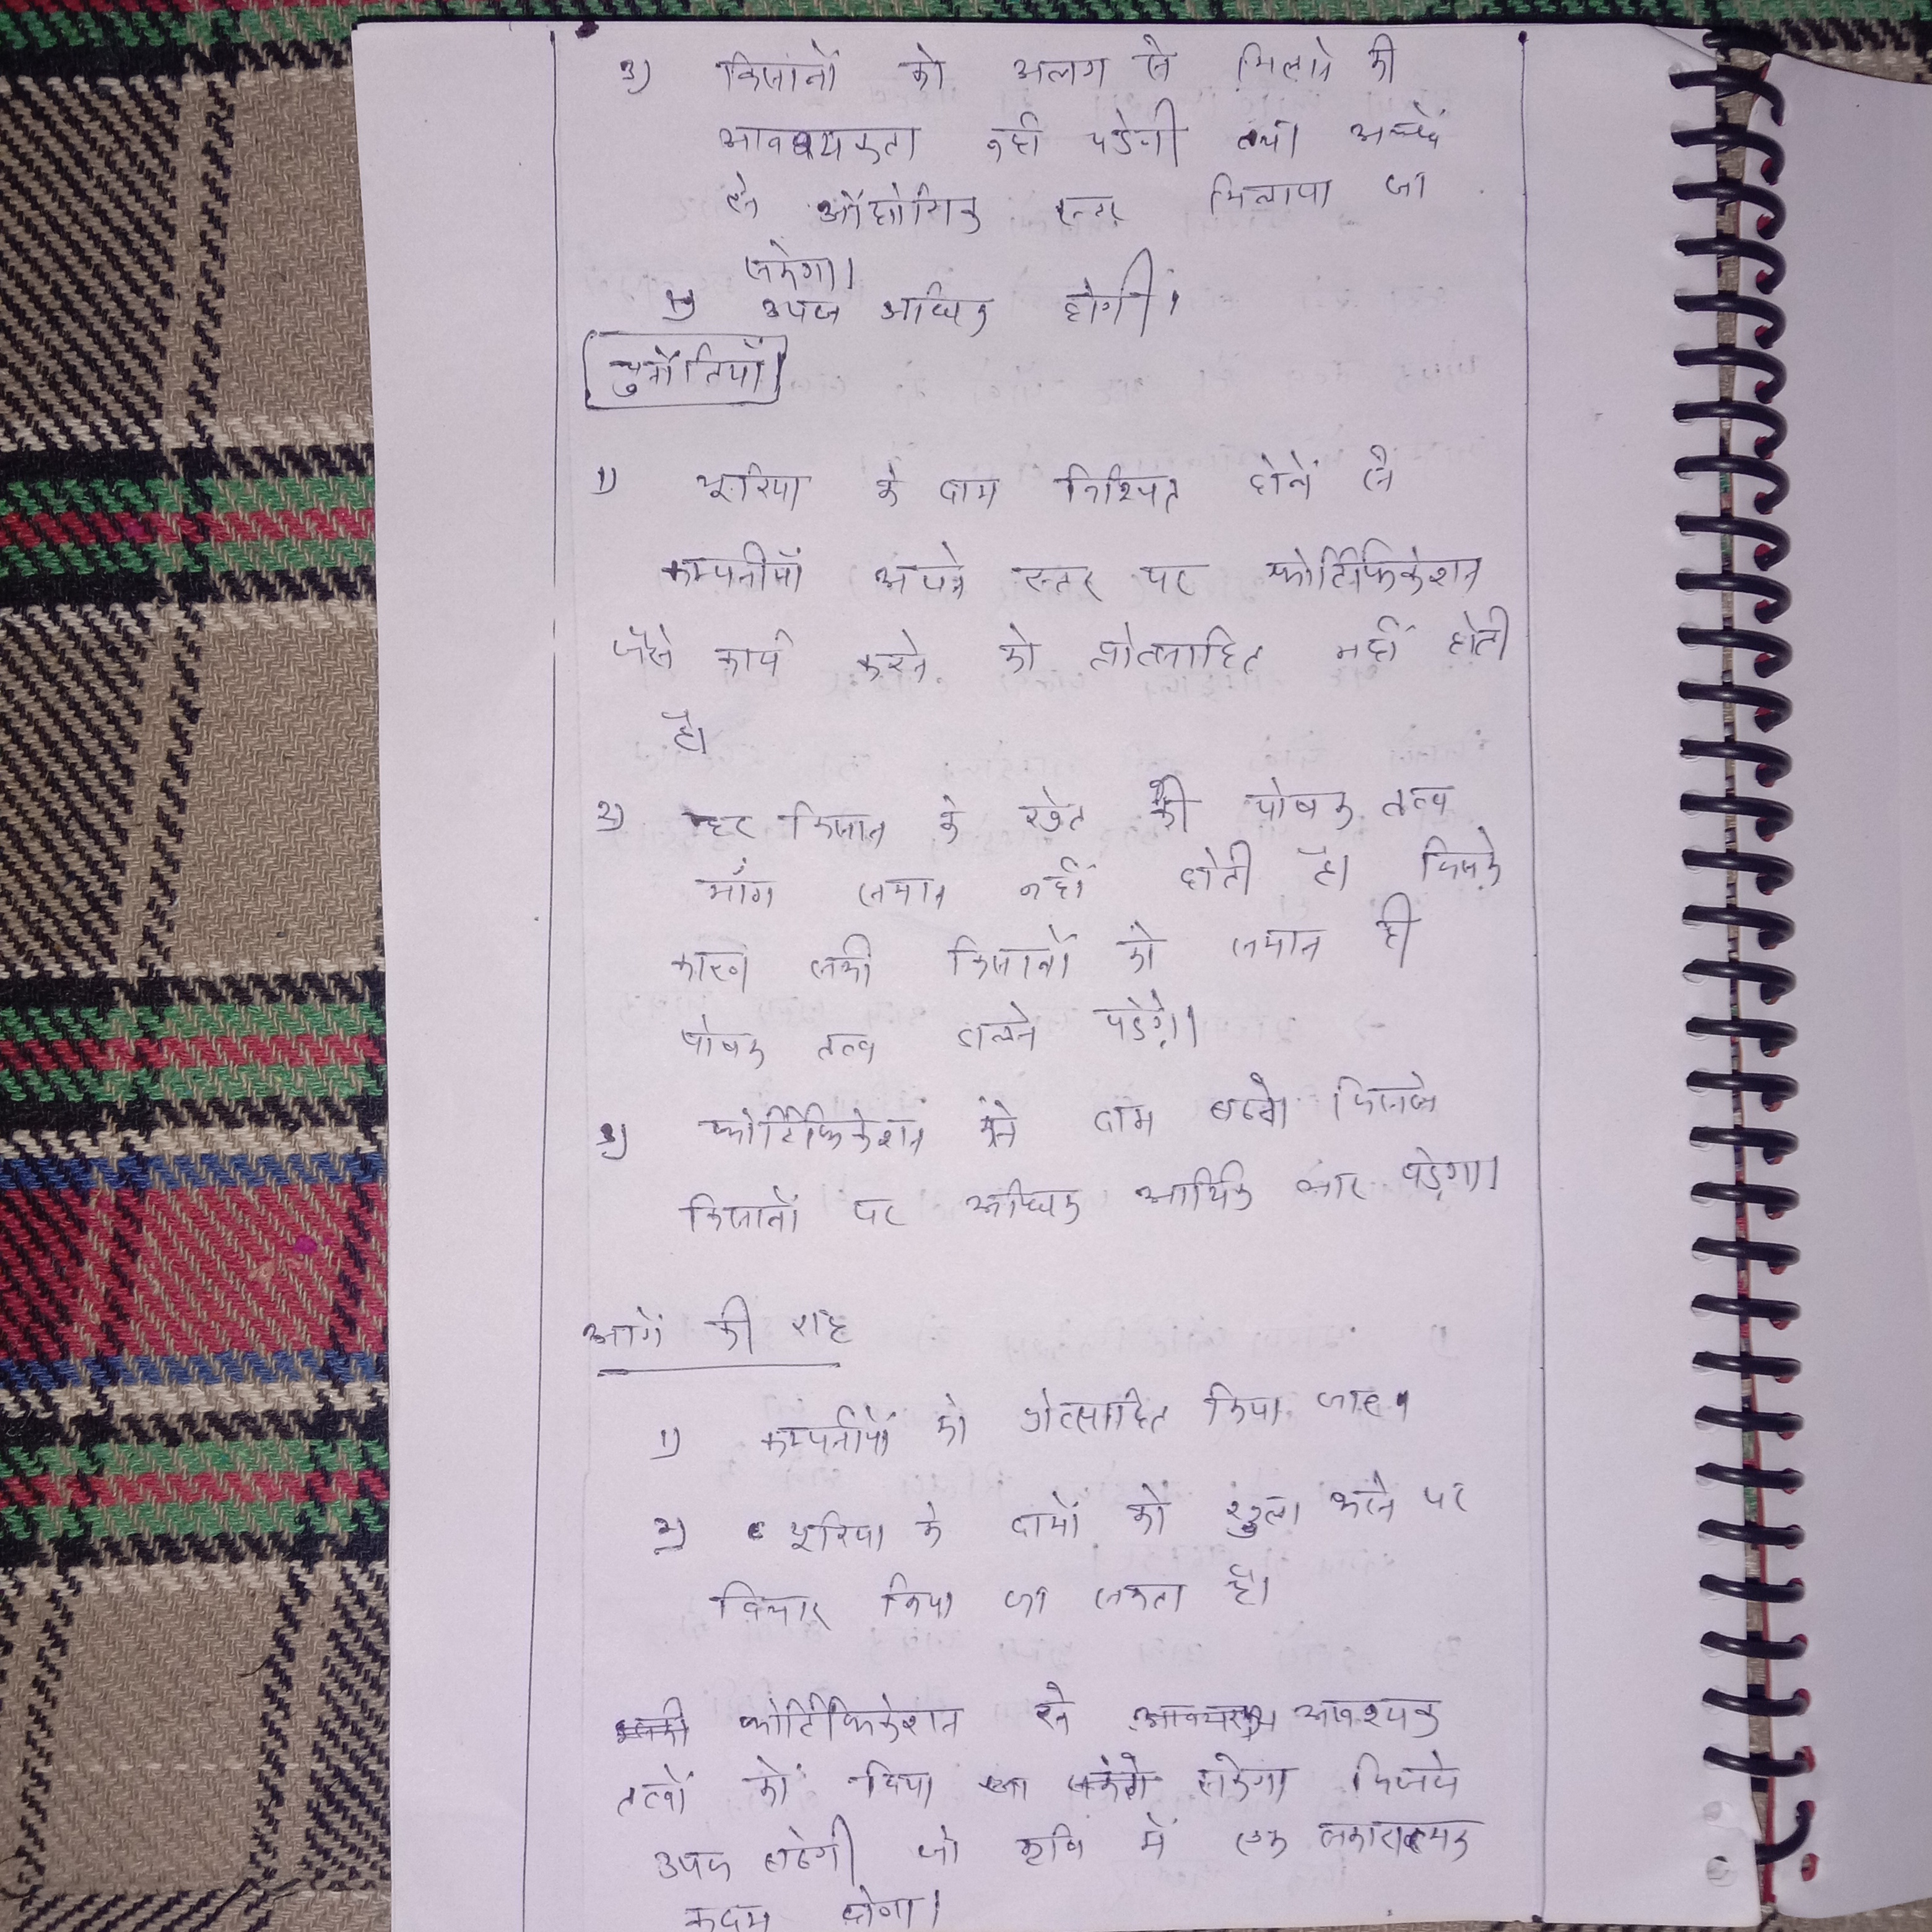 3) किसानों को अलग से मिलाने की
आवश्यकता नहीं पडेगी तथा अच्छे
से औद्योगिक स्तर मिलाया जा
सकेगा।
4) उपज अधिक होगी।
चुनौतियाँ
1) यूरिया के दाम निश्चित होनें से
कम्पनीयाँ अपने स्तर पर फोर्टिफिकेशन
जैसे कार्य करने को प्रोत्साहित नहीं होती
है।
2) हर किसान के खेत की पोषक तत्व
माँग समान नहीं होती है। जिसके
कारण सभी किसानों को समान ही
पोषक तत्व डालने पडेगे।
3) फोर्टिफिकेशन से दाम बढेगे जिससे
किसानों पर अधिक आर्थिक भार पडेगा।
आगे की राह
1) कम्पनीयों को प्रोत्साहित किया जाए।
2) यूरिया के दामों को खुला करने पर
विचार किया जा सकता है।
फोर्टिफिकेशन से आवश्यक
तत्वों को दिया जा सकेगा जिससे
उपज बढेगी जो कृषि में एक सकारात्मक
कदम होगा।